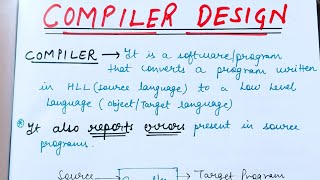 COMPILER DESIGN
COMPILER → It is a software/program
that converts a program written
in HLL (source language) to a Low Level
Language (object/Target language)
* It also reports errors present in source
program.
Source Target Program